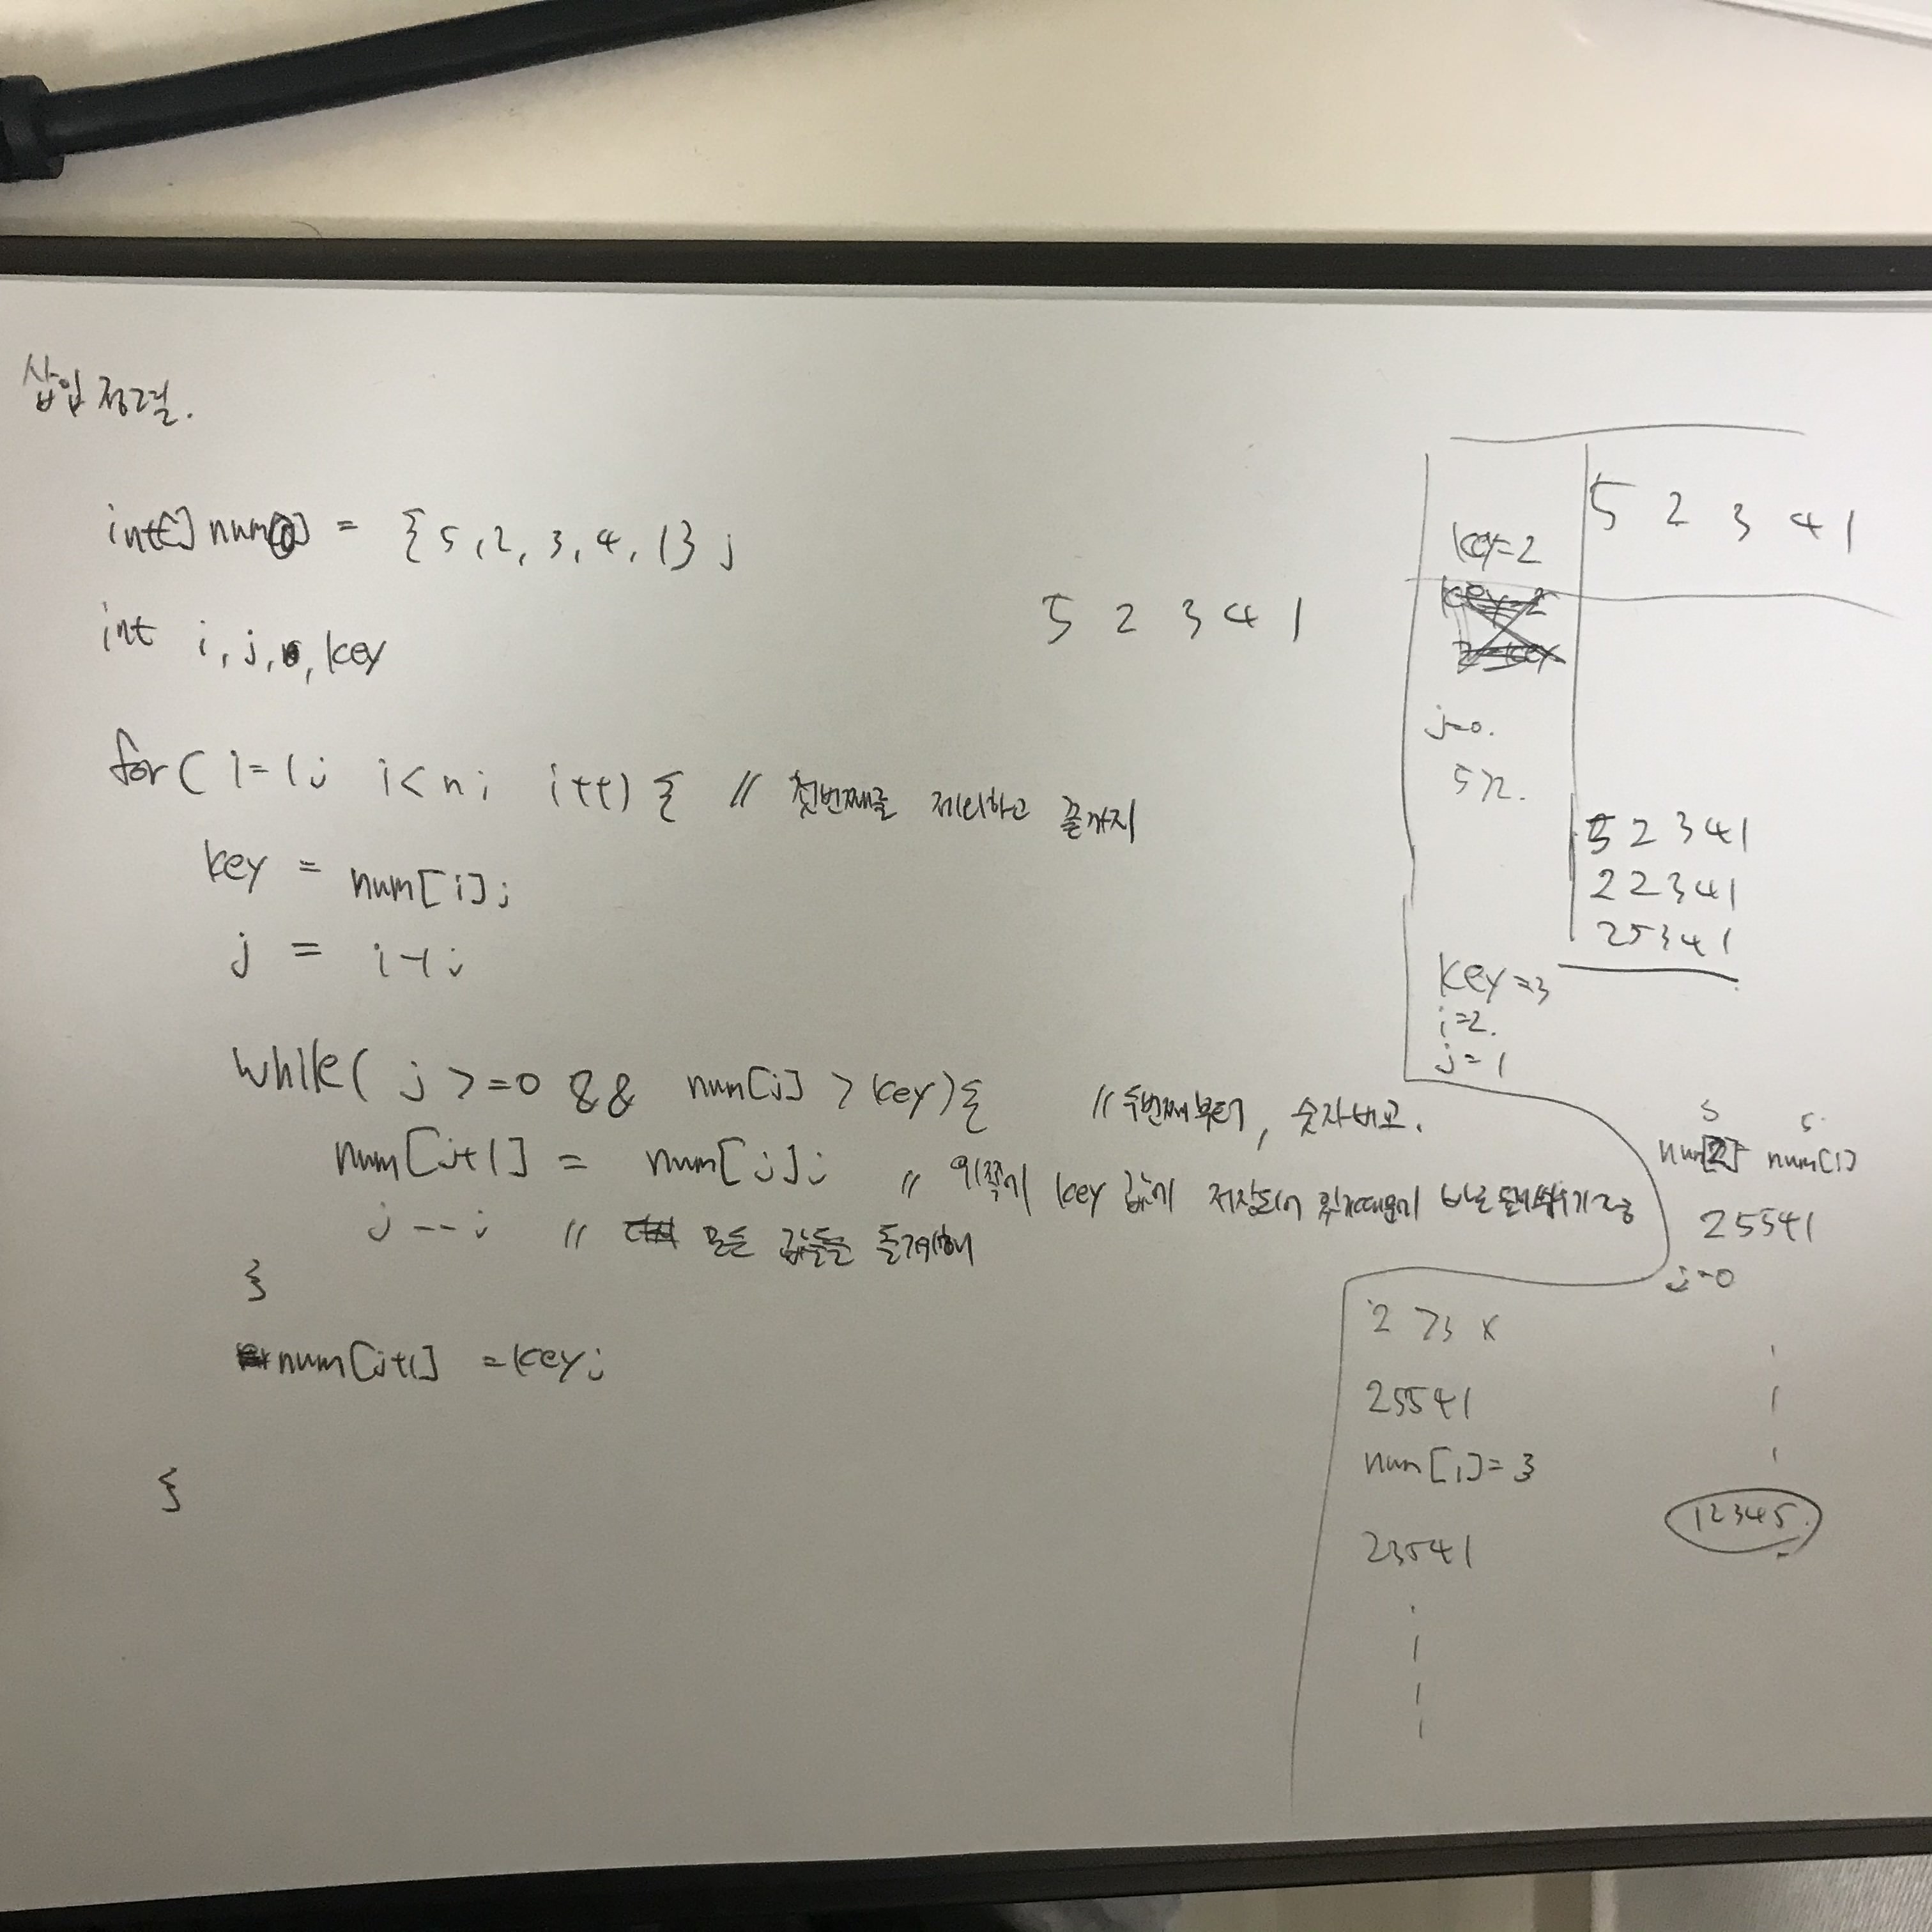 삽입정렬.
int[] num = {5, 2, 3, 4, 1};
int i, j, key
5 2 3 4 1
for( i=1; i<n; i++) { // 첫번째를 제외하고 끝까지
key = num[i];
j = i-1;
while( j >=0 && num[j] > key){ // 두번째부터, 숫자비교.
num[j+1] = num[j]; // 위쪽에 key 값에 저장되어 있기때문에
j--; // 모든 값들을 돌기위해
}
num[j+1] = key;
}
key=2
5 2 3 4 1
j=0.
5>2.
5 2 3 4 1
2 2 3 4 1
2 5 3 4 1
key=3
i=2.
j=1
5 5
num[2] num[1]
25541
j=0
2 >3 x
25541
num[1]=3
23541
12345.